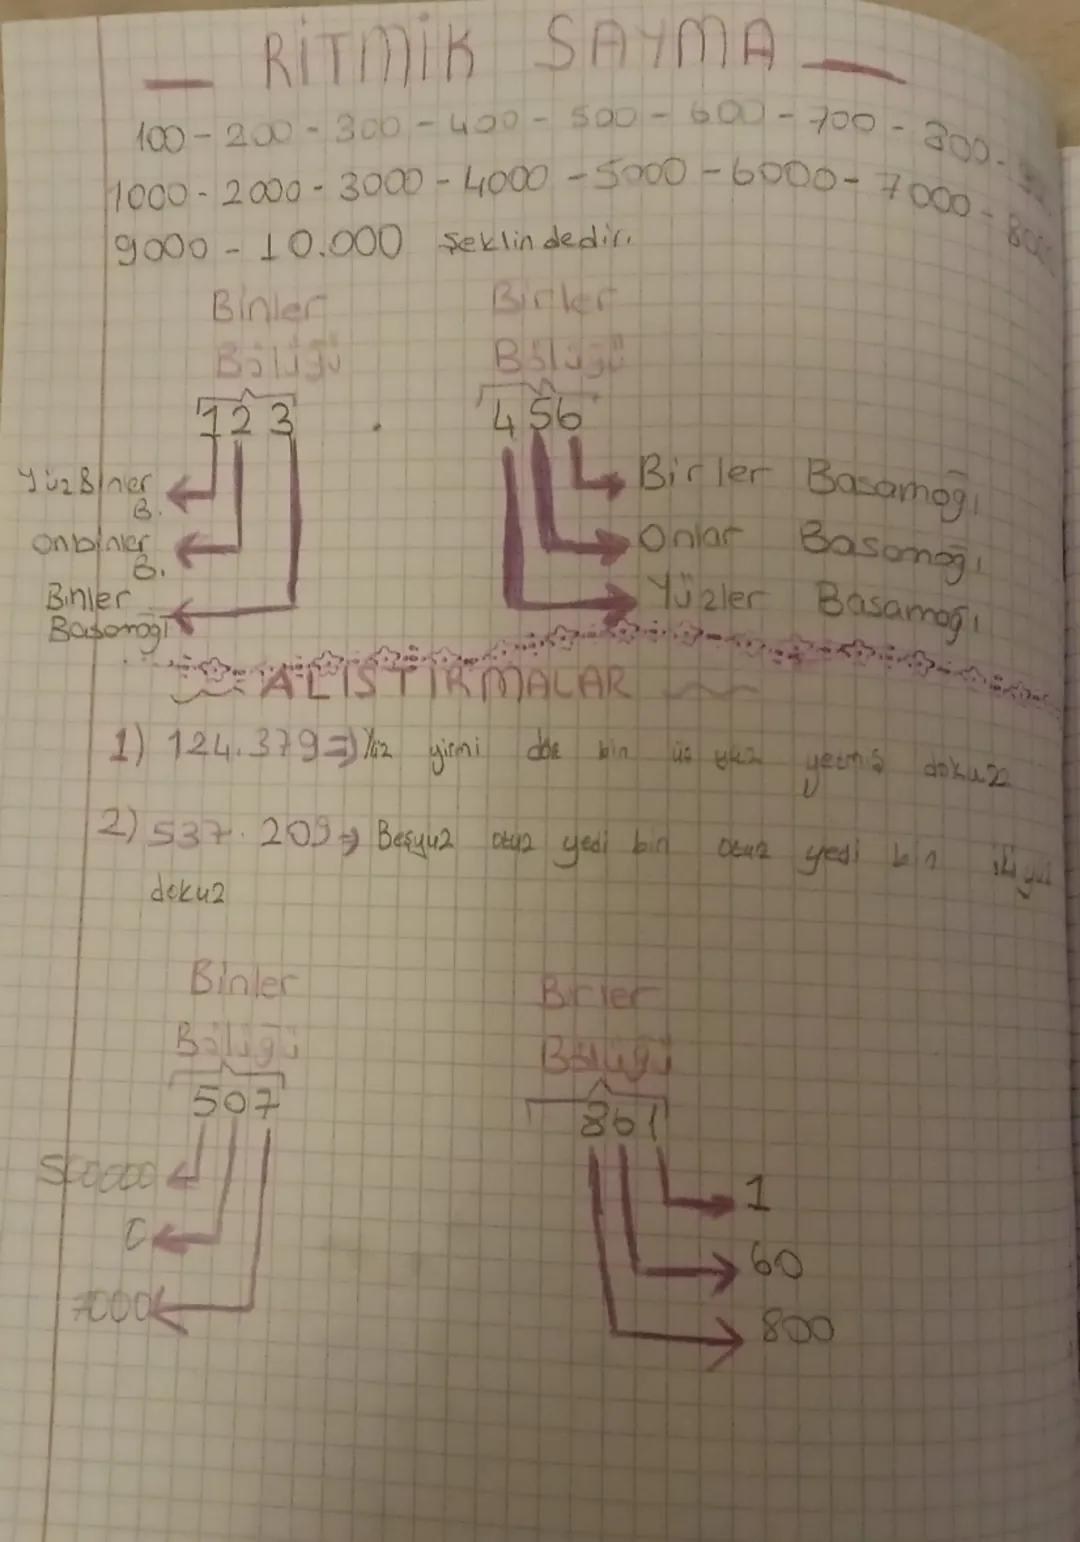 RİTMİK SAYMA
100 - 200 - 300 - 400 - 500 - 600 - 700 - 800 -
1000 - 2000 - 3000 - 4000 - 5000 - 6000 - 7000 - 8000
9000 - 10.000 şeklindedir.
Binler Birler
Bölüğü Bölüğü
123 . 456
Yüz Binler B. Birler Basamağı
Onbinler B. Onlar Basamağı
Binler Basamağı Yüzler Basamağı
ALIŞTIRMALAR
1) 124.379 => Yüz yirmi dört bin üç yüz yetmiş dokuz
2) 537.209 => Beşyüz otuz yedi bin otuz yedi bin ikiyüz
dokuz
Binler Birler
Bölüğü Bölüğü
507 861
500000 1
0 60
7000 800